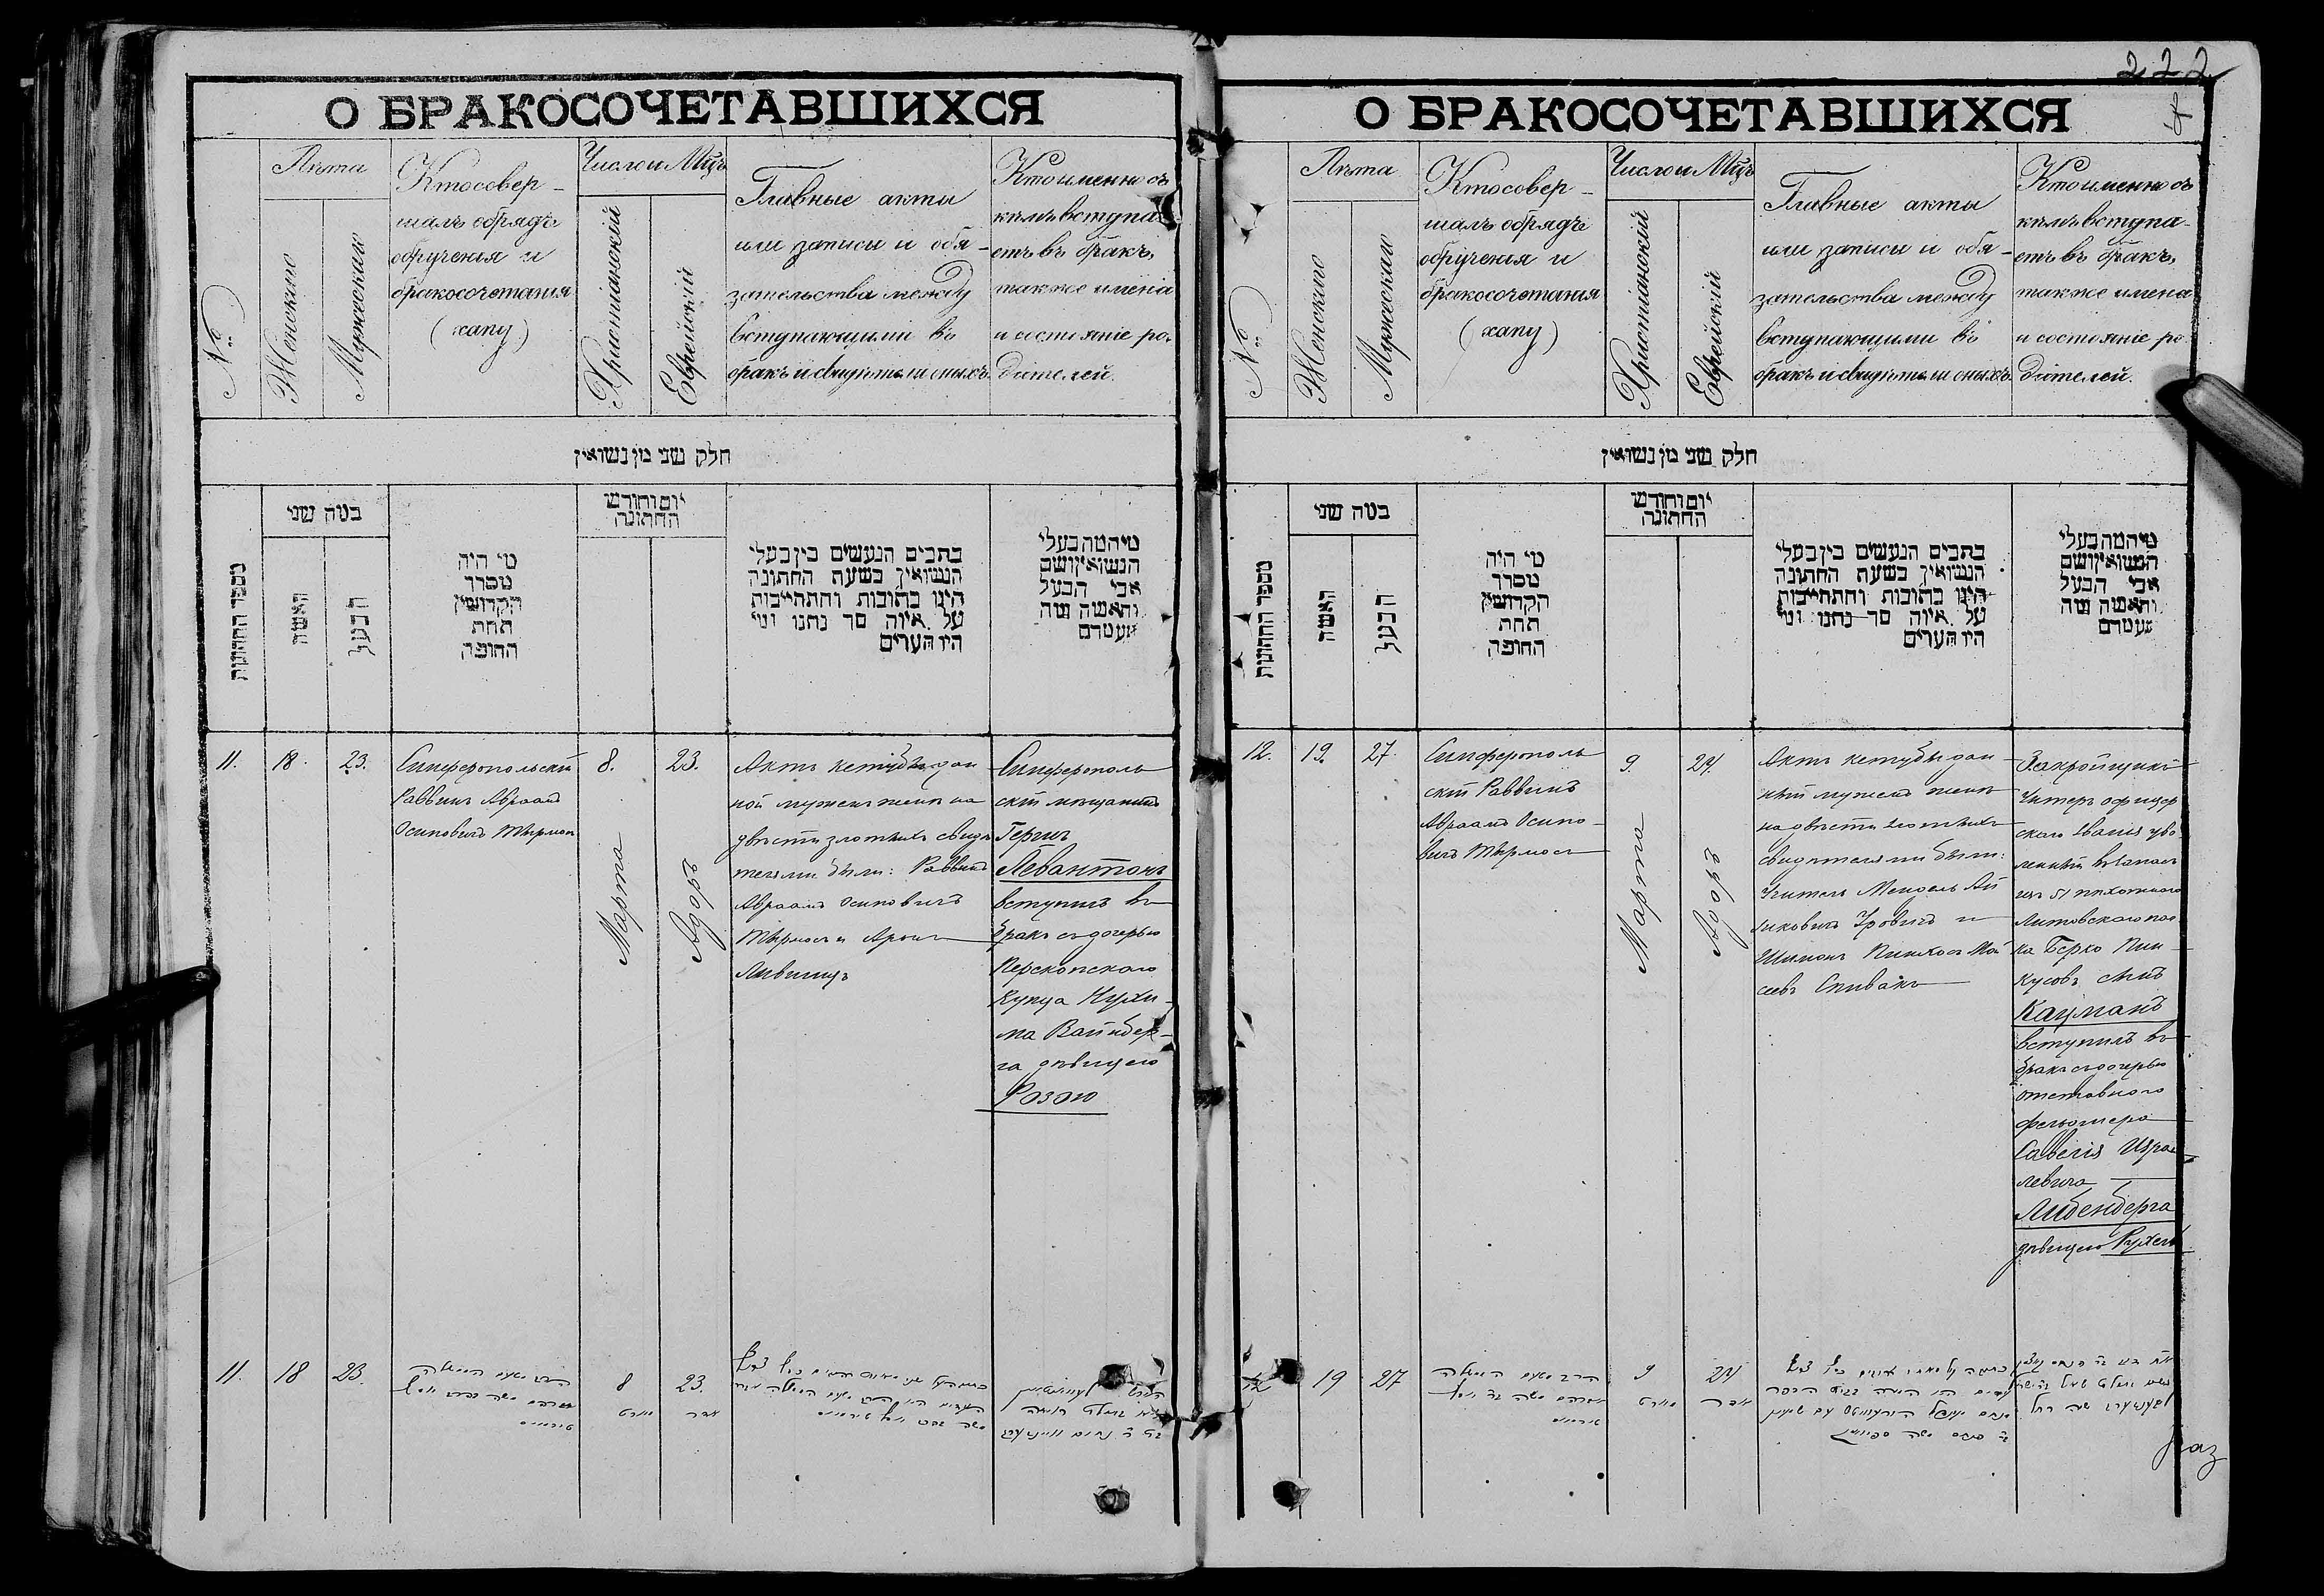 О БРАКОСОЧЕТАВШИХСЯ
№
Лѣта
Женскаго
Мужескаго
Кто совер-
шалъ обрядъ
обрученія и
бракосочетанія
(хапу)
Число и Мцъ
Христіанскій
Еврейскій
Главные акты
или записи и обя-
зательства между
вступающими въ
бракъ и свидѣтели оныхъ.
Кто именно съ
кѣмъ вступа-
етъ въ бракъ,
также имена
и состояніе ро-
дителей.
חלק שני מן נשואין
מספר החתונות
כמה שני
האשה
הבעל
מי היה
מסדר
הקדושין
תחת
החופה
יום וחודש
החתונה
כתבים הנעשים בין בעלי
הנשואין בשעת החתונה
היינו כתובות והתחייבות
על איזה סך נתנו ומי
היו העדים
מי המה בעלי
הנשואין ושם
אבי הבעל
והאשה ומה
מעמדם
11.
18.
23.
Симферопольскій
Раввинъ Авраамъ
Осиповичъ Тырмосъ
8.
Марта
23.
Адоръ
Актъ кетубы дан
ной мужемъ женѣ на
двѣсти злотыхъ свидѣ
телями были: Раввинъ
Авраамъ Осиповичъ
Тырмосъ и Аронъ
Лившицъ
Симферополь
скій мѣщанинъ
Гершъ
Левантонъ
вступилъ въ
бракъ съ дочерью
Перекопскаго
Купца Нухи-
ма Вайнбер-
га дѣвицею
Розою
11.
18
23.
8
מארט
23.
אדר
222
О БРАКОСОЧЕТАВШИХСЯ
№
Лѣта
Женскаго
Мужескаго
Кто совер-
шалъ обрядъ
обрученія и
бракосочетанія
(хапу)
Число и Мцъ
Христіанскій
Еврейскій
Главные акты
или записи и обя-
зательства между
вступающими въ
бракъ и свидѣтели оныхъ.
Кто именно съ
кѣмъ вступа-
етъ въ бракъ,
также имена
и состояніе ро-
дителей.
חלק שני מן נשואין
מספר החתונות
כמה שני
האשה
הבעל
מי היה
מסדר
הקדושין
תחת
החופה
יום וחודש
החתונה
כתבים הנעשים בין בעלי
הנשואין בשעת החתונה
היינו כתובות והתחייבות
על איזה סך נתנו ומי
היו העדים
מי המה בעלי
הנשואין ושם
אבי הבעל
והאשה ומה
מעמדם
12.
19.
27.
Симферополь
скій Раввинъ
Авраамъ Осипо-
вичъ Тырмосъ
9.
Марта
24.
Адоръ
Актъ кетубы дан-
ный мужемъ женѣ
на двѣсти злотыхъ
свидѣтелями были:
Учитель Мендель
Уровичъ и
Шимонъ Пинхосъ Мой
сеевъ Спивакъ
Закройщикъ
Унтеръ офицер
скаго званія уво
ленный въ запасъ
изъ 51 пѣхотнаго
Литовскаго пол
ка Берко Пин-
кусовъ сынъ
Кацманъ
вступилъ въ
бракъ съ дочерью
отставнаго
фельдшера
Савелія Изра-
левича
Либенберга
дѣвицею Рухель
12
19
27
9
מארט
24
אדר